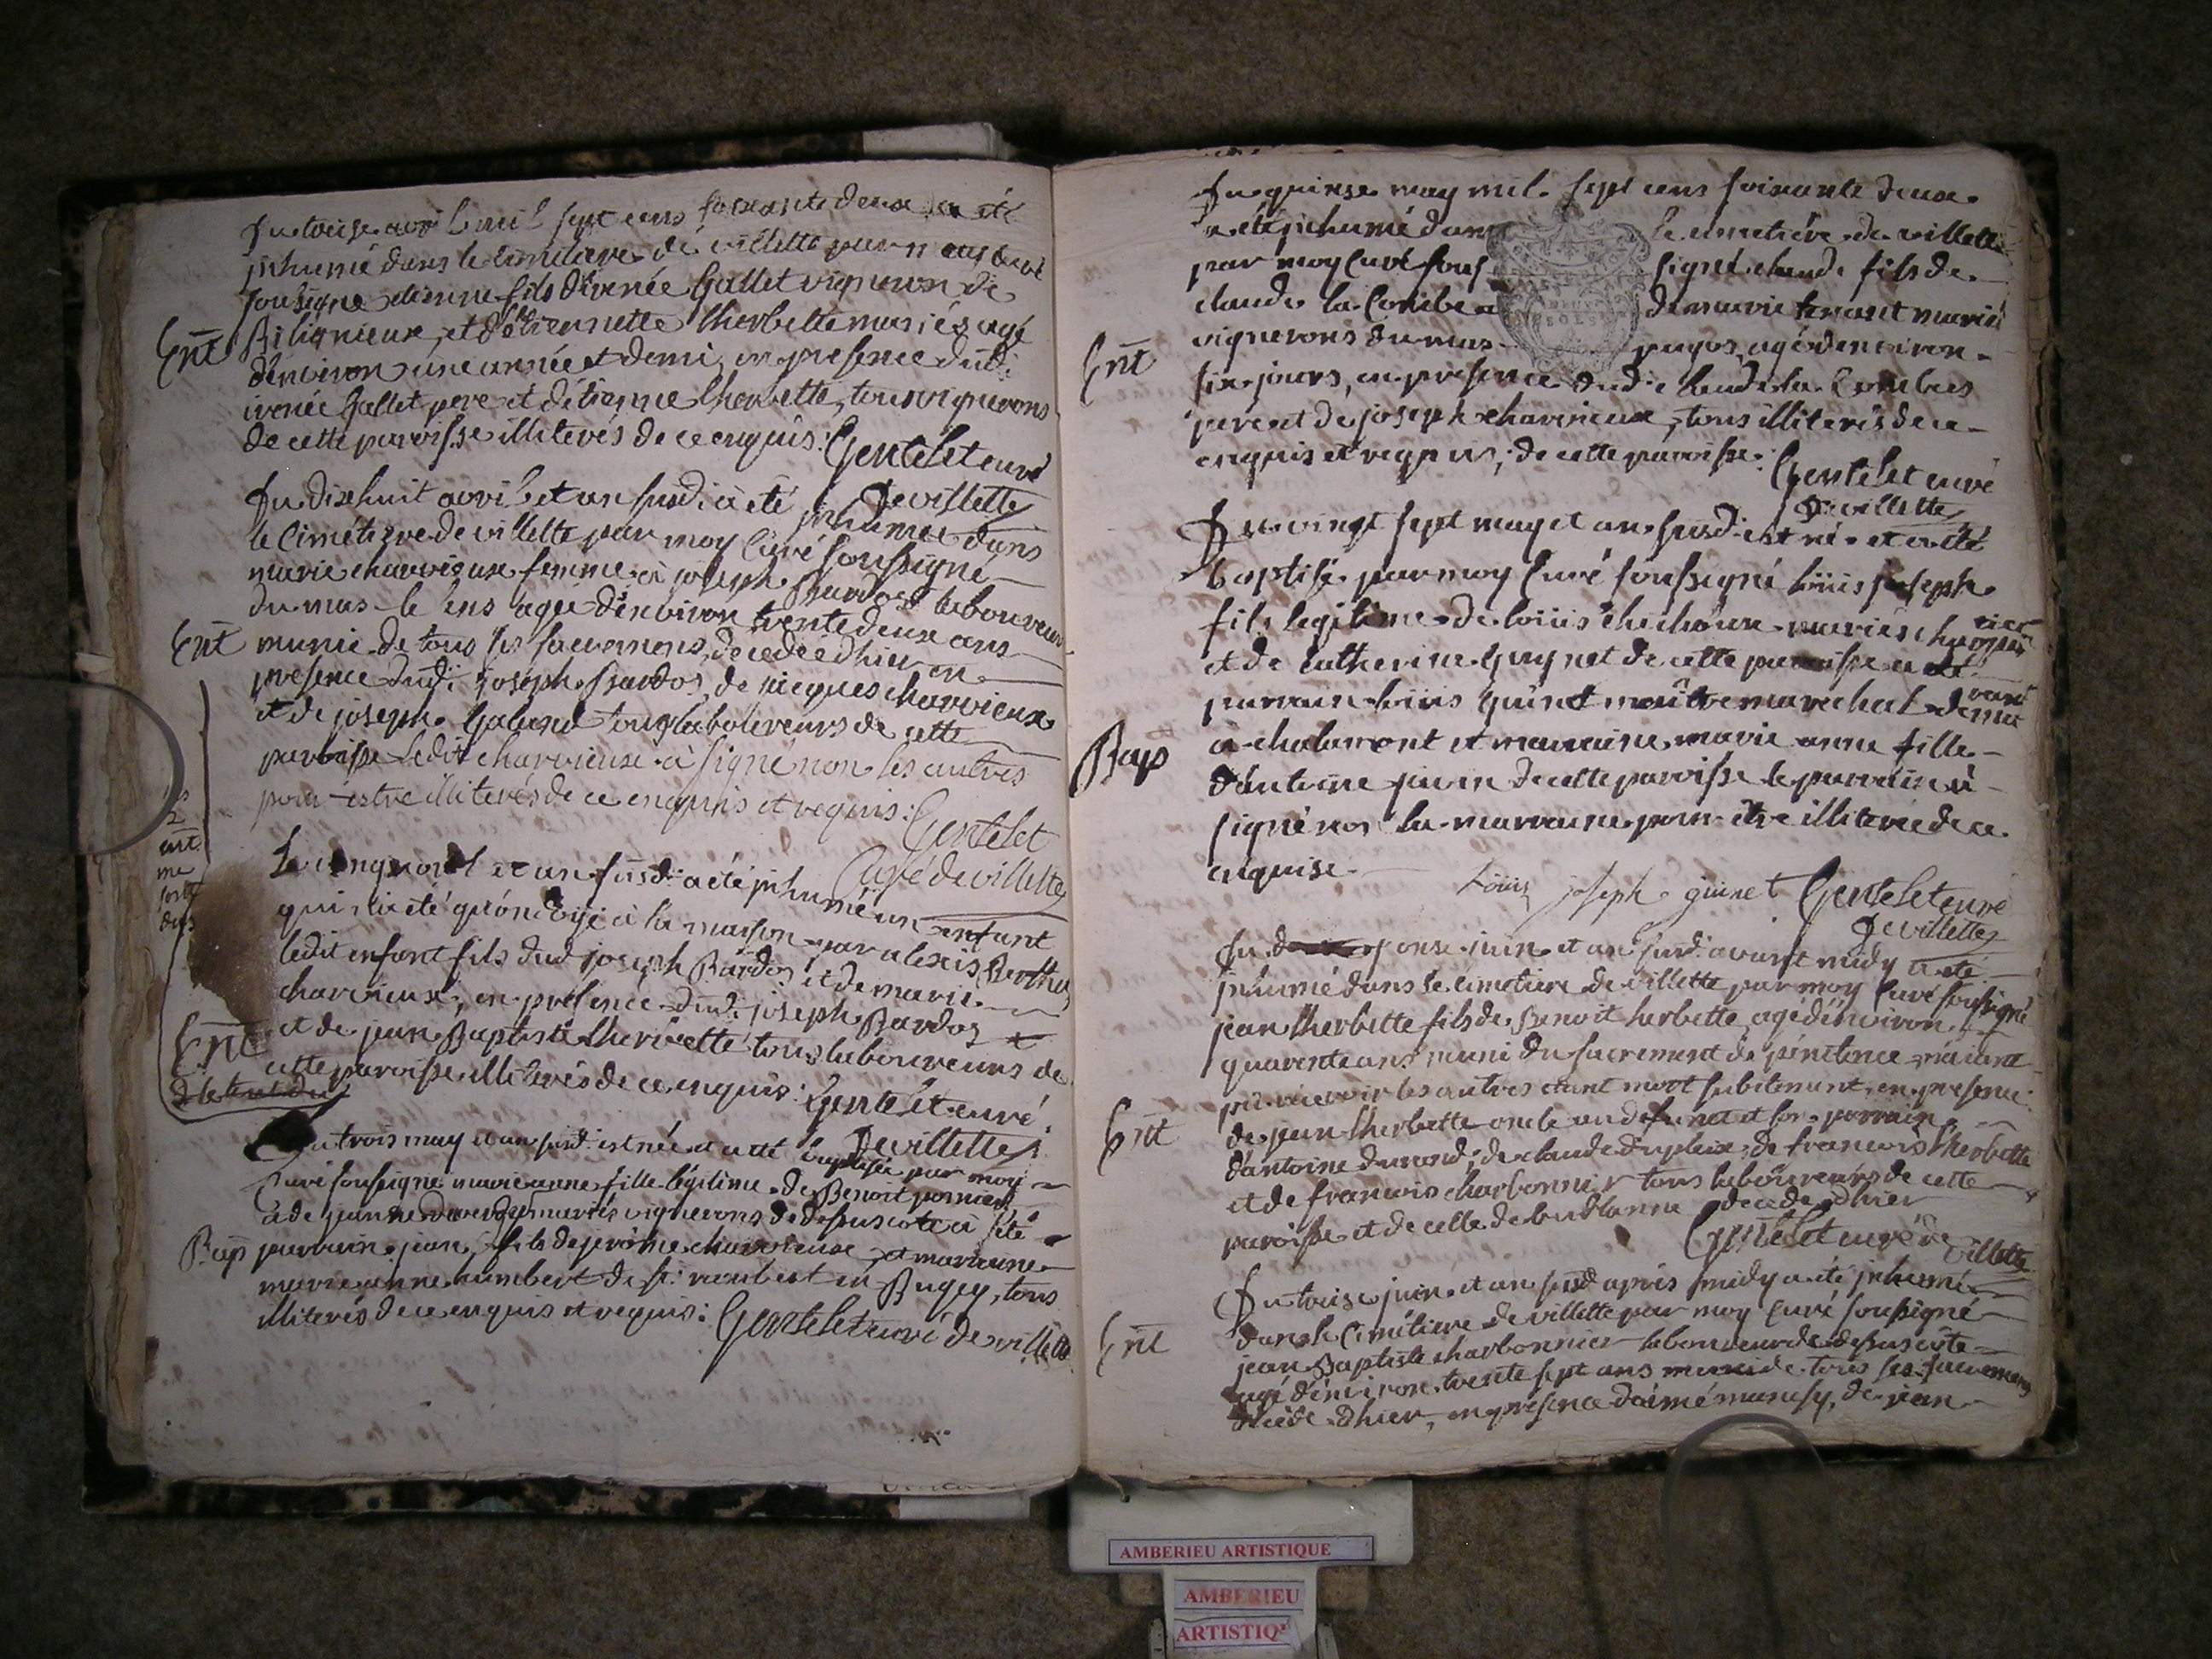 Du treise avril mil sept cens soixante deux a été
jnhumé dans le cimetiere de villette par nous curé
soussigné etienne fils d'irenée Gallet vigneron de
Ent Bilignieux, et d'etiennette lherbette mariés agé
d'environ une année et demi, en presence dud:
irenée Gallet pere et d'étienne lherbette, tous vignerons
de cette paroisse illiterés de ce enquis: Gentelet curé
de villette
Du dixhuit avril et an susd: à été jnhumée dans
le Cimetiere de villette par moy Curé soussigné
marie charvieux femme à joseph Bardos laboureur
du mas le lens agée d'environ trente deux ans
Ent munie de tous ses sacremens, decedée dhier en
presence dud: joseph Bardos, de jacques charvieux
et de joseph Galand tous laboureurs de cette
paroisse ledit charvieux à signé non les autres
pour estre illiterés de ce enquis et requis: Gentelet
Curé de villette
Le vingt avril et an susd: a été jnhumé un enfant
qui n'a été qu'ondoyé à la maison par alexis Berthet
ledit enfant fils dud joseph Bardos et de marie
charvieux, en presence dud: joseph Bardos
Ent et de jean Baptiste lherbette tous laboureurs de
cette paroisse illiterés de ce enquis: Gentelet curé
de villette
Du trois may et an susd: est née et a été baptisée par moy
Curé soussigné marie anne fille légitime de Benoit
à de jeanne mariés vignerons de dessus cote à été
Bap parrain jean, fils de jerôme charvieux et marraine
marie anne humbert de st: rambert en Bugey, tous
illiterés de ce enquis et requis: Gentelet curé de villette
Du quinse may mil sept cens soixante deux
a été jnhumé dans le cimetiére de villette
par moy Curé soussigné claude fils de
claude la Combe et de marie tenant mariés
Ent vignerons du mas pagos, agé denviron
six jours, en presence dud: claude la Combe
pere et de joseph charvieux, tous illiterés de ce
enquis et requis; de cette paroisse: Gentelet curé
de villette
Du vingt sept may et an susd: est né et a été
baptisé par moy Curé soussigné loüis joseph
fils legitime de loüis mariés
et de Catherine Guynet de cette paroisse a été
parrain loüis Guinet maître marechal demeurant
Bap à chalamont et marraine marie anne fille
d'antoine juin de cette paroisse le parrain à
signé non la marraine pour être illiterée de ce
enquise.
Loüis joseph guinet Gentelet curé
de villette
Du onse juin et an susd: avant midy a été
jnhumé dans le cimetiere de villette par moy Curé soussigné
jean lherbette fils de Benoit herbette, agé d'environ
quarente ans muni du sacrement de pénitence n'aiant
pû recevoir les autres etant mort subitement, en presence
Ent de jean lherbette oncle au defunct et son parrain
d'antoine durand, de claude dupleix, de francois lherbette
et de francois charbonnier tous laboureurs de cette
paroisse et de celle de brublanne decede dhier
Gentelet curé de villette
Du treise juin et an susd après midy a été jnhumé
dans le Cimétiere de villette par moy Curé soussigné
Ent jean Baptiste charbonnier laboureur de dessus cote
agé d'environ trente sept ans muni de tous ses sacremens
décédé dhier, en presence d'aimé de jean
AMBERIEU ARTISTIQUE
AMBERIEU
ARTISTIQ